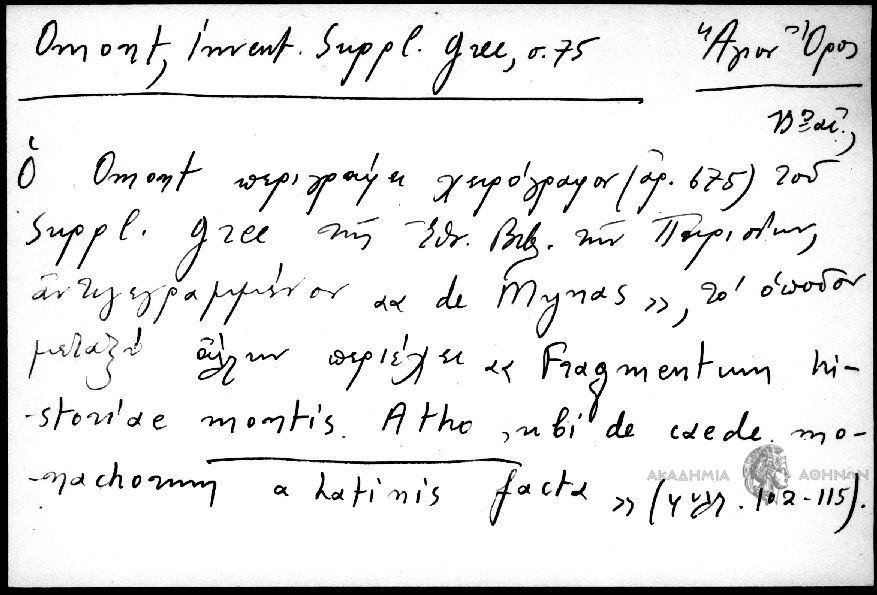 Omont, invent. Suppl. Grec, σ. 75
Ἅγιον Ὄρος
Ὁ Omont περιγράφει χειρόγραφον (ἀρ. 675) τοῦ
Suppl. Grec τῆς Ἐθν. Βιβ. τῶν Παρισίων,
ἀντιγεγραμμένον «de Mynas», τὸ ὁποῖον
μεταξὺ ἄλλων περιέχει «Fragmentum hi-
-storiae montis Atho, ubi de caede mo-
-nachorum a Latinis facta» (φύλλ. 102-115).
ΑΚΑΔΗΜΙΑ ΑΘΗΝΩΝ